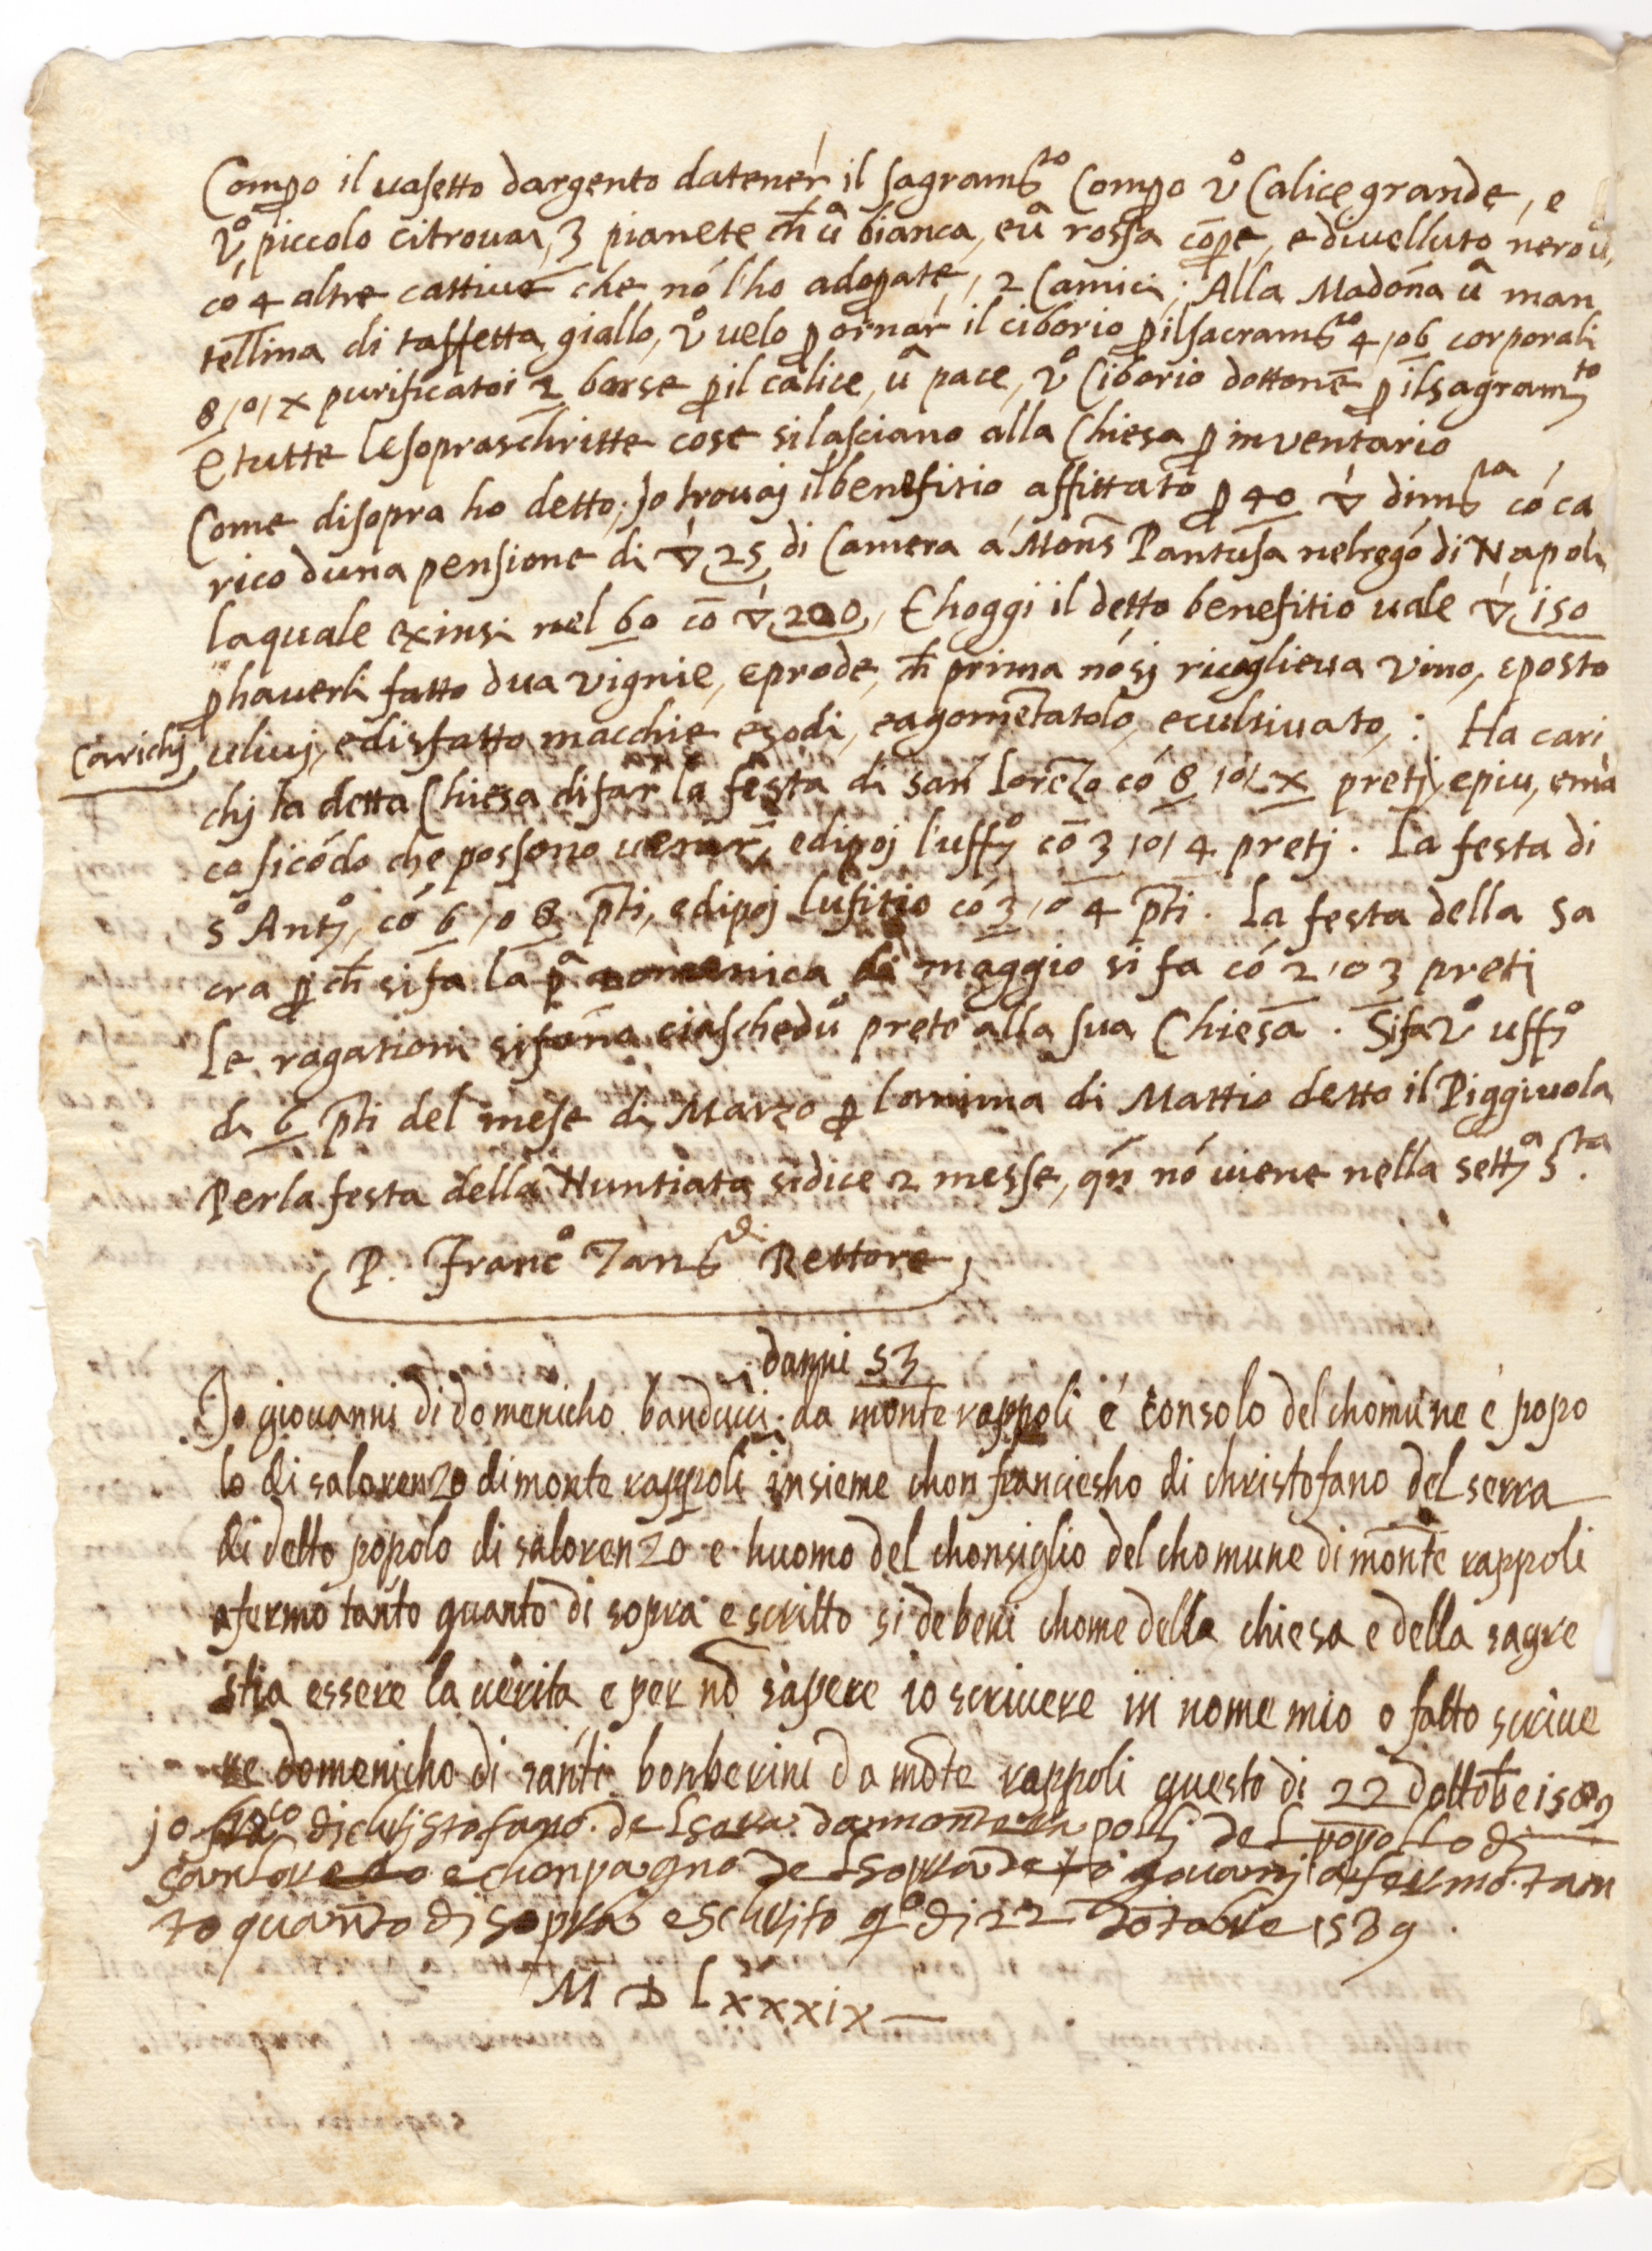 Compo il uasetto dargento datener il sagramto Compo vo Calice grande, e
vo piccolo citrouai, 3 pianete ch ua bianca, eua rossa cope, e diuelluto nero ua,
có 4 altre cattiue che nó lho adoprate, 2 Camici; Alla Madona ua man
tellina di taffetta giallo, vo uelo p ornar il ciborio p ilsacramto 4, o 6 corporali
8, o, x purificatoi 2 borse p il calice, ua pace, vo Ciborio dottone p ilsagramto
E tutte lesopraschritte cose silasciano alla Chiesa p inventario
Come disopra ho detto; Jo trouaj ilbenefitio affittato p 40 di mta có ca
rico duna pensione di 25 di Camera á Mons Pantusa nelregó di Napoli
laquale exinsi nel 60 có 200, E hoggi il detto benefitio uale 150
p hauerli fatto dua vignie, eprode, ch prima nó sj ricoglieua vino, eposto
Carichj uliuj, edisfatto macchie esodi, eagometatolo, ecultiuato,: Ha cari
chj la detta Chiesa difar la festa di san Lorezo có 8, o, x pretj, epiu,
co sicódo che possono uenir, edipoj l'uffo có 3, o, 4 pretj. La festa di
So Anto, có 6, o 8 pti, edipoj lufitio có 3, o 4 pti. La festa della sa
cra p ch si fa la pa domenica di maggio si fa có 2, o 3 pretj
Le rogationi sifano ciaschedú prete alla sua Chiesa. Sifa vo uffo
di 6 pti del mese di Marzo p lanima di Mattio detto il Piggiuola
Perla festa della Nuntiata sidice 2 messe, qn nó viene nella setta Sta.
P. Franco Rettore
danni 53
Jo giouanni di domenicho banducci da monte rappoli é consolo del chomune é popo
lo di salorenzo di monte rappoli insieme chon franciesho di christofano del serra
di detto popolo di salorenzo e huomo del chonsiglio del chomune di monte rappoli
afermo tanto quanto di sopra e scritto si de beni chome della chiesa e della sagre
stia essere la uerita e per nó sapere io scriuere in nome mio o fatto scriue
re domenicho di santi bonberini da móte rappoli questo di 22 dottobe 1589
jo fraco di chrjstofano del sera da monte ra polj del popollo dj
san lorenzo e chonpagno del sopra deto gouanj afermo tan
to quanto dj sopra e schrjto qo dj 22 dotobre 1589.
M D Lxxxix